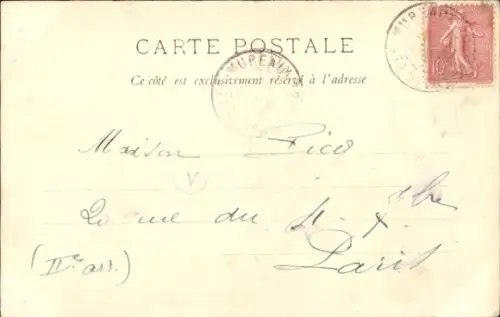 CARTE POSTALE
Ce côté est exclusivement réservé à l'adresse
MUREAUX
10
Maison Pico
V
20 rue du 4 7bre
Paris
(IIe arr.)